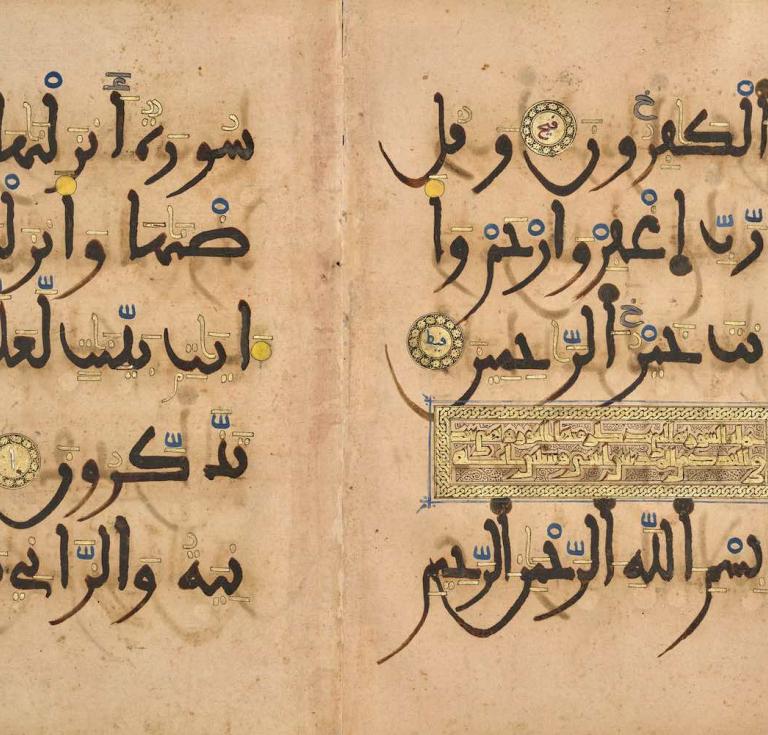 الكفرون وقل
رب اغفر وارحم وا
نت خير الرحمين
بسم الله الرحمن الرحيم
سورة أنزلنها
ضنها وأنزل
ايت بينت لعل
تذكرون
نية والزاني